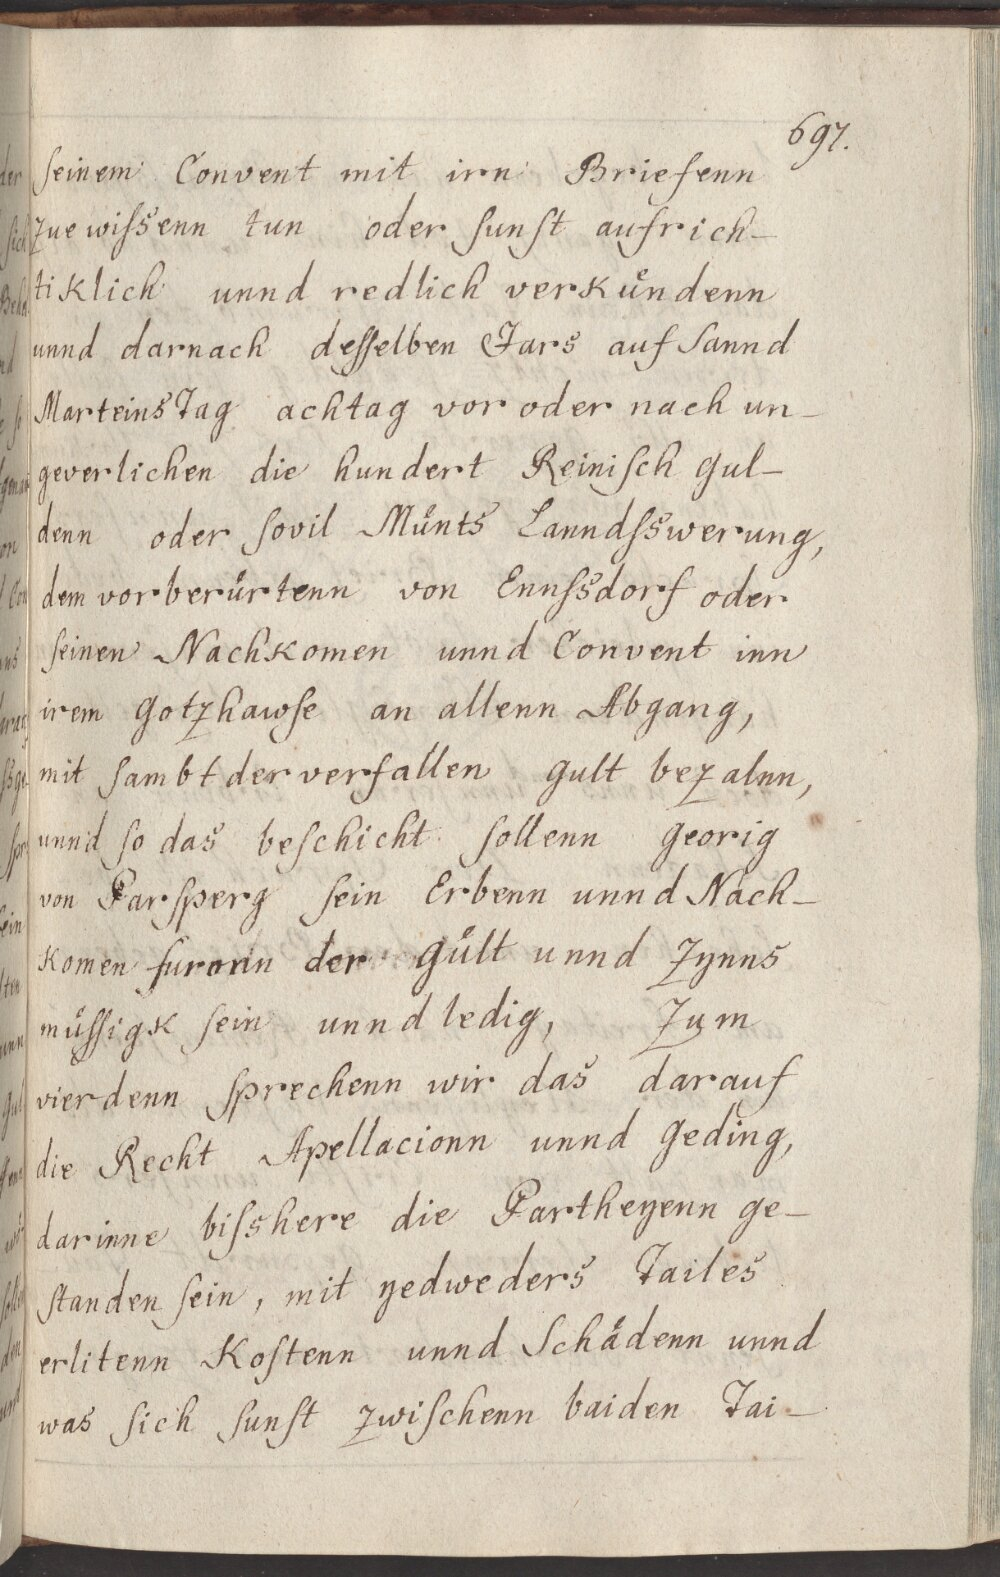 697.
seinem Convent mit irn Briefenn
zue wissenn tun oder sunst aufrich-
tiklich unnd redlich verkündenn
unnd darnach desselben Jars auf Sannd
Marteins Tag achtag vor oder nach un-
geverlichen die hundert Reinisch Gul-
denn oder sovil Münts Lanndsswerung,
dem vorberürtenn von Ennssdorf oder
seinen Nachkomen unnd Convent inn
irem Gotzhawse an allenn Abgang,
mit sambt der verfallen Gult bezalnn,
unnd so das beschicht sollenn Georig
von Parsperg sein Erbenn unnd Nach-
komen der Gült unnd Zynns
müssigk sein unnd ledig, Zum
vierdenn sprechenn wir das darauf
die Recht Apellacionn unnd Geding,
darinne bisshere die Partheyenn ge-
standen sein, mit yedweders Tailes
erlitenn Kostenn unnd Schädenn unnd
was sich sunst zwischenn baiden Tai-